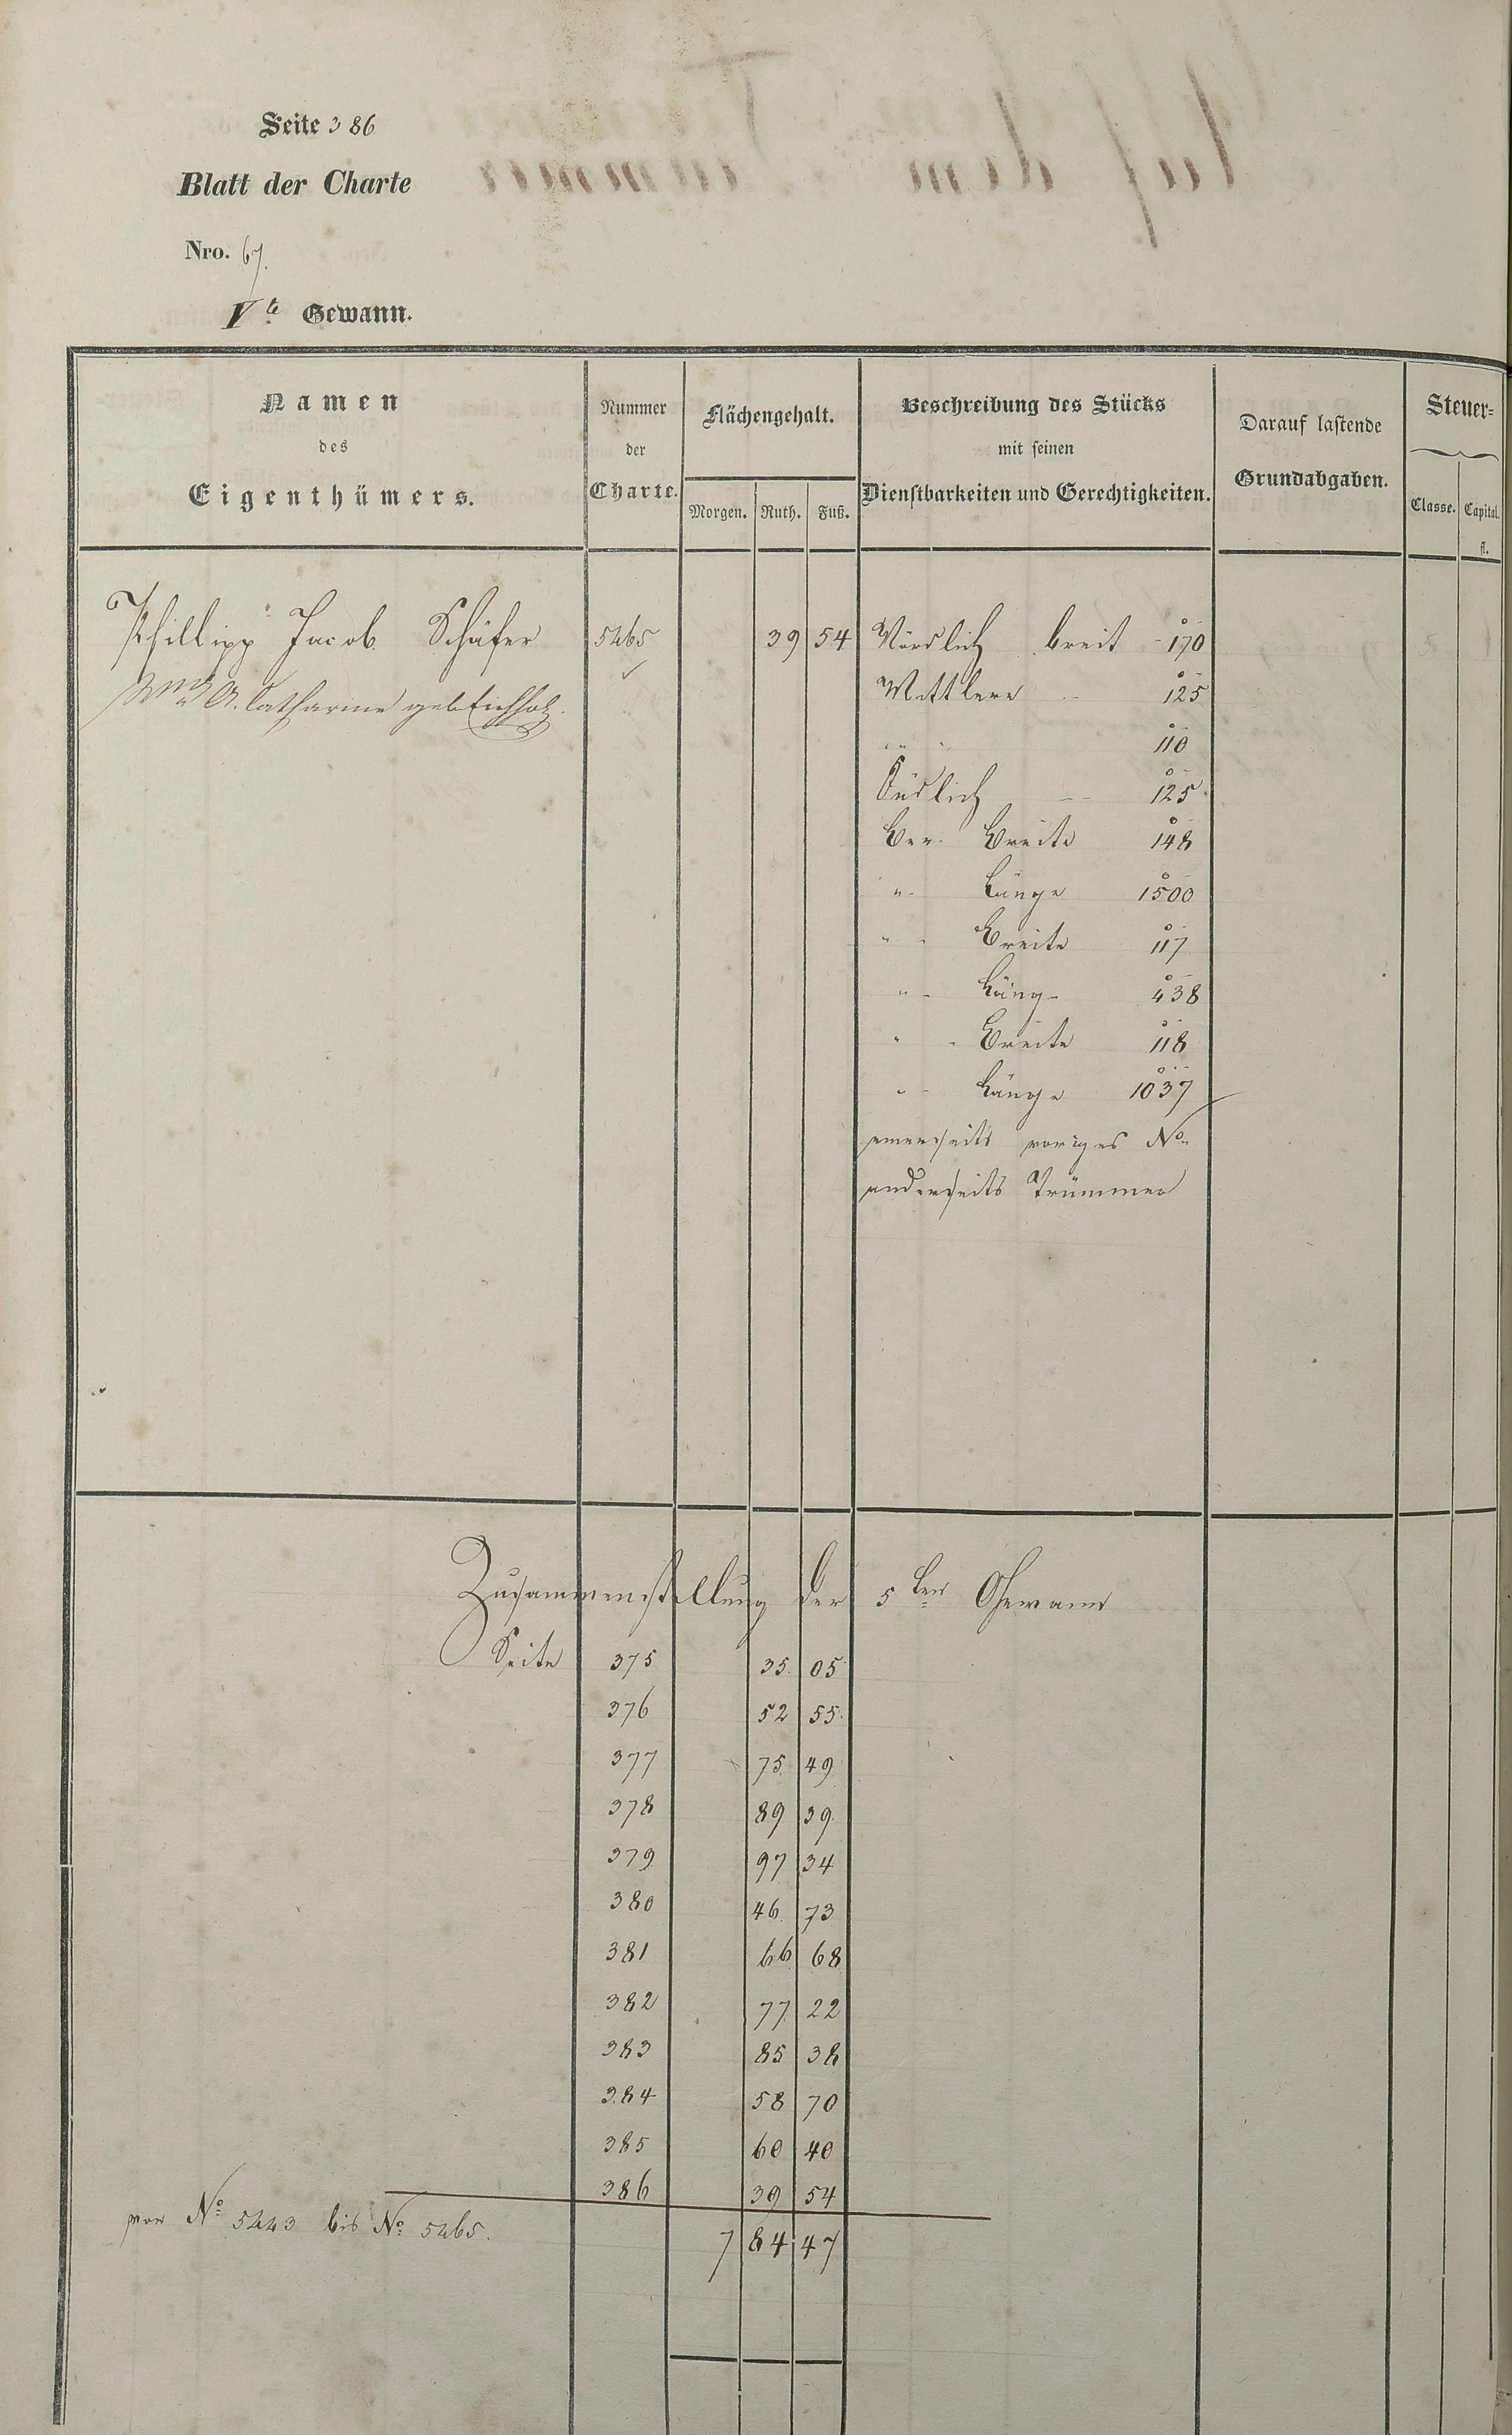 Seite 386
Blatt der Charte
Nro. 67.
Vte Gewann.
Namen
des
Eigenthümers.
Nummer
der
Charte.
Flächengehalt.
Morgen. Ruth. Fuß.
Beschreibung des Stücks
mit seinen
Dienstbarkeiten und Gerechtigkeiten.
Darauf lastende
Grundabgaben.
Steuer-
Classe. Capital.
fl.
Phillipp Jacob Schäfer 5265 39 54 Nördlich breit 170
A. Catharine geb. Eichholz. Mittlere 125
" " 110
Südlich 125
Ber. Breite 148
" Länge 1500
" Breite 117
" Läng 438
" Breite 118
" Länge 1037
einerseits voriges No
anderseits Trümmer
Zusammenstellung der 5ten Gewann
Seite 375 35 05
376 52 55
377 75 49
378 89 39
379 97 34
380 46 73
381 66 68
382 77 22
383 85 38
384 58 70
385 60 40
386 39 54
von No 5223 bis No 5265. 7 84 47